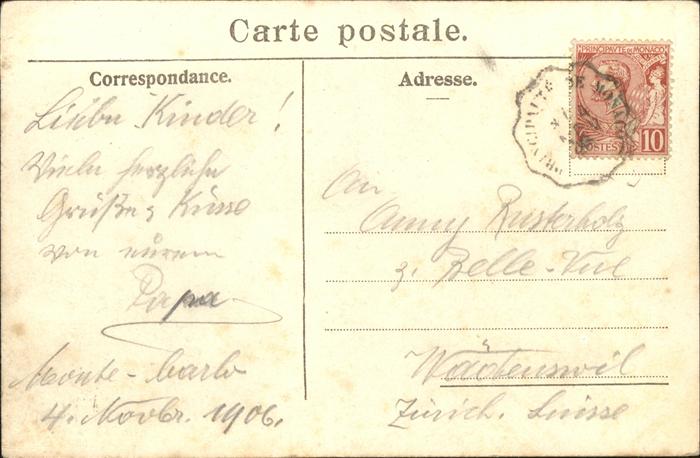 Carte postale.
Correspondance.
Adresse.
PRINCIPAUTÉ DE MONACO
POSTES 10
PRINCIPAUTÉ DE MONACO
Liebe Kinder!
Viele herzliche
Grüße & Küsse
von eurem
Papa
Monte-Carlo
4. Novbr. 1906.
An
Anny Rusterholz
z. Belle-Vue
Wädenswil
Zürich. Suisse